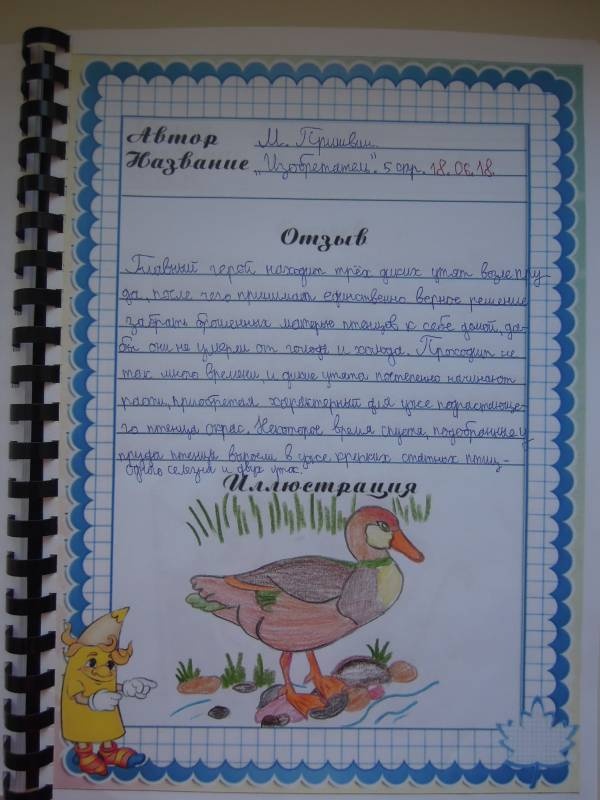 Автор М. Пришвин.
Название "Изобретатель". 5 стр. 18.06.18.
Отзыв
Главный герой находит трёх диких утят возле пру-
да, после чего принимает единственно верное решение
забрать брошенных матерью птенцов к себе домой, да-
бы они не умерли от голода и холода. Проходит не
так много времени, и дикие утята постепенно начинают
расти, приобретая характерный для уже подрастающе-
го птенца окрас. Некоторое время спустя, подобранные у
пруда птенцы выросли в уже крепких статных птиц -
одного селезня и двух уток.
Иллюстрация